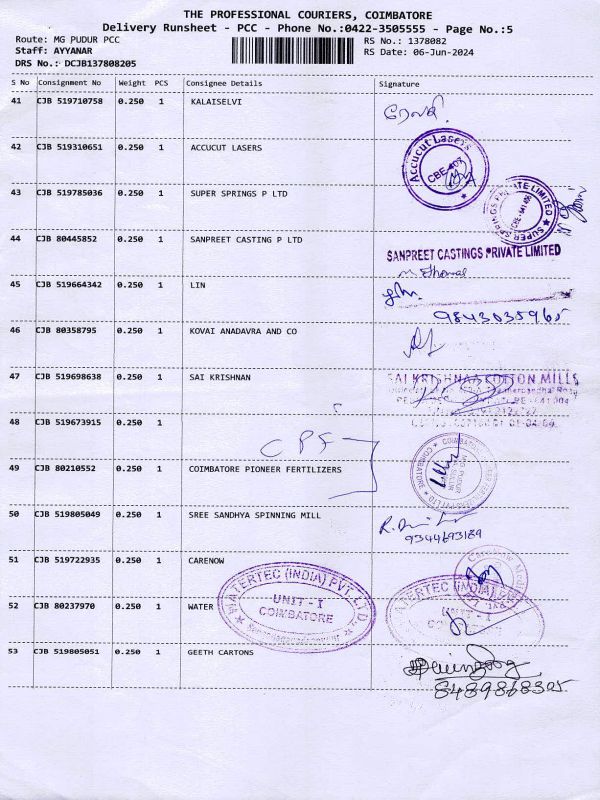 THE PROFESSIONAL COURIERS, COIMBATORE
Delivery Runsheet - PCC - Phone No.:0422-3505555 - Page No.:5
Route: MG PUDUR PCC RS No.: 1378082
Staff: AYYANAR RS Date: 06-Jun-2024
DRS No.: DCJB137808205
S No Consignment No Weight PCS Consignee Details Signature
41 CJB 519710758 0.250 1 KALAISELVI
42 CJB 519310651 0.250 1 ACCUCUT LASERS
Accucut Lasers
43 CJB 519785036 0.250 1 SUPER SPRINGS P LTD
SUPER SPRINGS PRIVATE LIMITED
44 CJB 80445852 0.250 1 SANPREET CASTING P LTD
SANPREET CASTINGS PRIVATE LIMITED
45 CJB 519664342 0.250 1 LIN
9843035965
46 CJB 80358795 0.250 1 KOVAI ANADAVRA AND CO
47 CJB 519698638 0.250 1 SAI KRISHNAN
SAI KRISHNA COTTON MILLS
48 CJB 519673915 0.250 1
CPF
49 CJB 80210552 0.250 1 COIMBATORE PIONEER FERTILIZERS
MG PUDUR
50 CJB 519805049 0.250 1 SREE SANDHYA SPINNING MILL
9344693189
51 CJB 519722935 0.250 1 CARENOW
52 CJB 80237970 0.250 1 WATER
WATERTEC (INDIA) PVT. LTD.
UNIT - I
COIMBATORE
WATERTEC (INDIA) PVT. LTD.
UNIT - I
53 CJB 519805051 0.250 1 GEETH CARTONS
8489868305